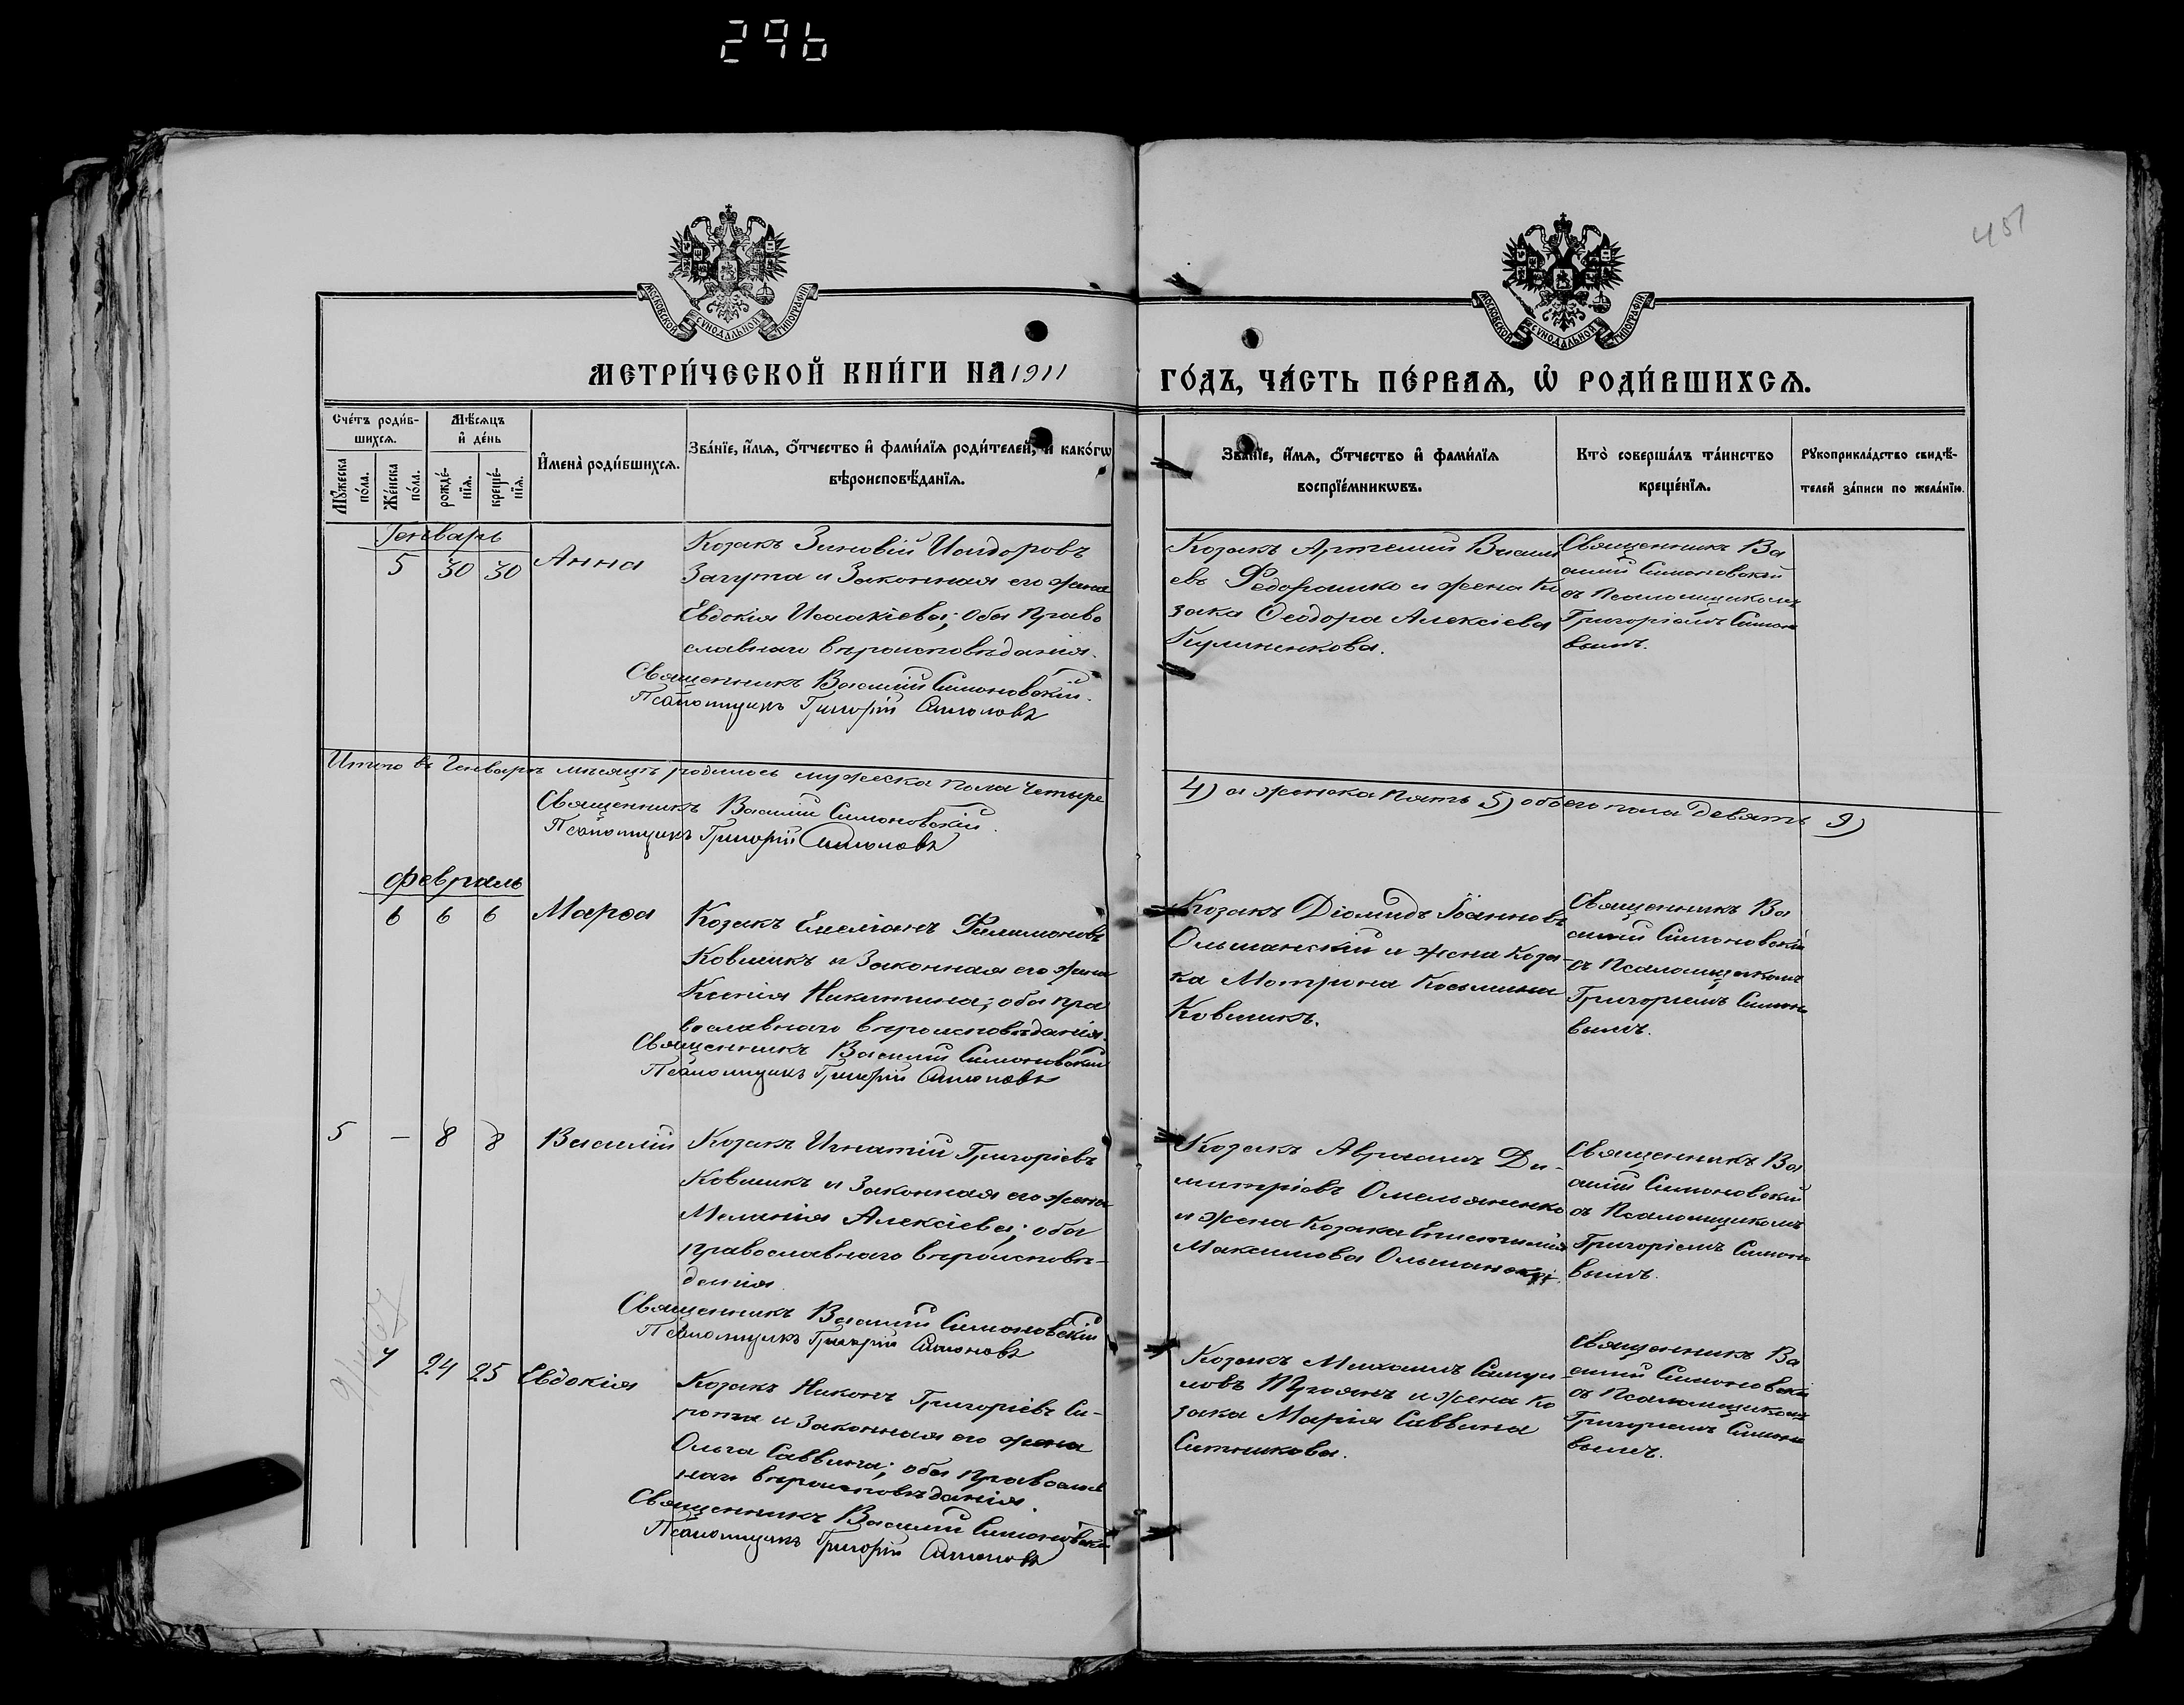 296
451
МОСКОВСКОЙ СУНОДАЛЬНОЙ ТИПОГРАФІИ
МОСКОВСКОЙ СУНОДАЛЬНОЙ ТИПОГРАФІИ
МЕТРИ́ЧЕСКОЙ КНИ́ГИ НА 1911
ГО́ДЪ, ЧА́СТЬ ПЕ́РВАѦ, Ѡ҆ РОДИ́ВШИХСѦ.
Сче́тъ роди́в-
шихсѧ.
Мꙋ́жеска
по́ла.
Же́нска
по́ла.
Мѣ́сѧцъ
и҆ де́нь
рожде́-
нїѧ.
креще́-
нїѧ.
И҆мена̀ роди́вшихсѧ.
Зва́нїе, и҆́мѧ, ѻ҆́тчество и҆ фами́лїѧ роди́телей, и҆ како́гѡ
вѣроисповѣ́данїѧ.
Зва́нїе, и҆́мѧ, ѻ҆́тчество и҆ фами́лїѧ
воспрїе́мникѡвъ.
Кто̀ соверша́лъ та́инство
креще́нїѧ.
Рꙋкоприкла́дство свидѣ́-
телей за́писи по жела́нїю.
Генварь
5 30 30 Анна
Козакъ Зиновій Исидоровъ
Загута и Законная его жена
Евдокія Исаакіева; оба право
славнаго вѣроисповѣданія.
Священникъ Василій Симоновскій.
Псаломщикъ Григорій Симоновъ
Козакъ Артемій Васили
евъ Федорашко и жена Ко
зака Ѳеодора Алексіева
Кулиненкова.
Священникъ Ва
силій Симоновскій
съ Псаломщикомъ
Григоріемъ Симоно
вымъ.
Итого въ Генварѣ мѣсяцѣ родилось мужеска пола четыре
4) а женска пять 5) обоего пола девять 9)
Священникъ Василій Симоновскій.
Псаломщикъ Григорій Симоновъ
Февраль
6 6 6 Марѳа
Козакъ Емеліанъ Филимоновъ
Ковшикъ и Законная его жена
Ксенія Никитина; оба пра
вославнаго вѣроисповѣданія.
Священникъ Василій Симоновскій
Псаломщикъ Григорій Симоновъ
Козакъ Діомидъ Іоанновъ
Ольшанскій и жена Коза-
ка Мотрона Косьмина
Ковшикъ.
Священникъ Ва
силій Симоновскій
съ Псаломщикомъ
Григоріемъ Симоно
вымъ.
5 — 8 8 Василій
Козакъ Игнатій Григоріевъ
Ковшикъ и Законная его жена
Меланія Алексіева; оба
православнаго вѣроисповѣ-
данія
Священникъ Василій Симоновскій
Псаломщикъ Григорій Симоновъ
Козакъ Авраамъ Ди-
митріевъ Омельяненко
и жена Козака Епистимія
Максимова Ольшанск
Священникъ Ва
силій Симоновскій
съ Псаломщикомъ
Григоріемъ Симоно
вымъ.
7 24 25 Евдокія
Козакъ Никонъ Григоріевъ Си-
рота и Законная его жена
Ольга Саввина; оба православ
наго вѣроисповѣданія.
Священникъ Василій Симоновскій
Псаломщикъ Григорій Симоновъ
Козакъ Михаилъ Самуи
ловъ и жена Ко
зака Марія Саввина
Ситникова.
Священникъ Ва
силій Симоновскій
съ Псаломщикомъ
Григоріемъ Симоно
вымъ.